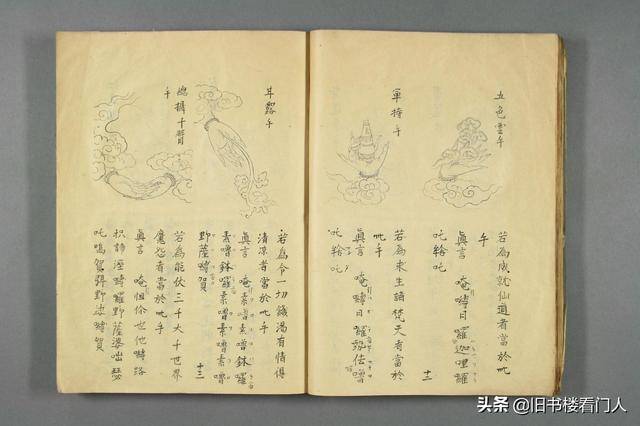 五色雲手
若為成就仙道者當於此
手
真言 唵嚩日囉迦哩囉
吒 吒
十二
軍持手
若為求生諸梵天者當於
此手
真言 唵嚩日囉 佉嚕
吒 吒
甘露手
若為令一切饑渴有情得
清涼者當於此手
真言 唵素嚕素嚕鉢囉
素嚕鉢囉素嚕素嚕素嚕
野薩嚩賀
十三
總攝千臂
手
若為能伏三千大千世界
魔怨者當於此手
真言 唵怛 也他嚩路
枳諦濕嚩囉野薩婆咄瑟
吒嗚賀 野娑嚩賀
头条 @旧书楼看门人